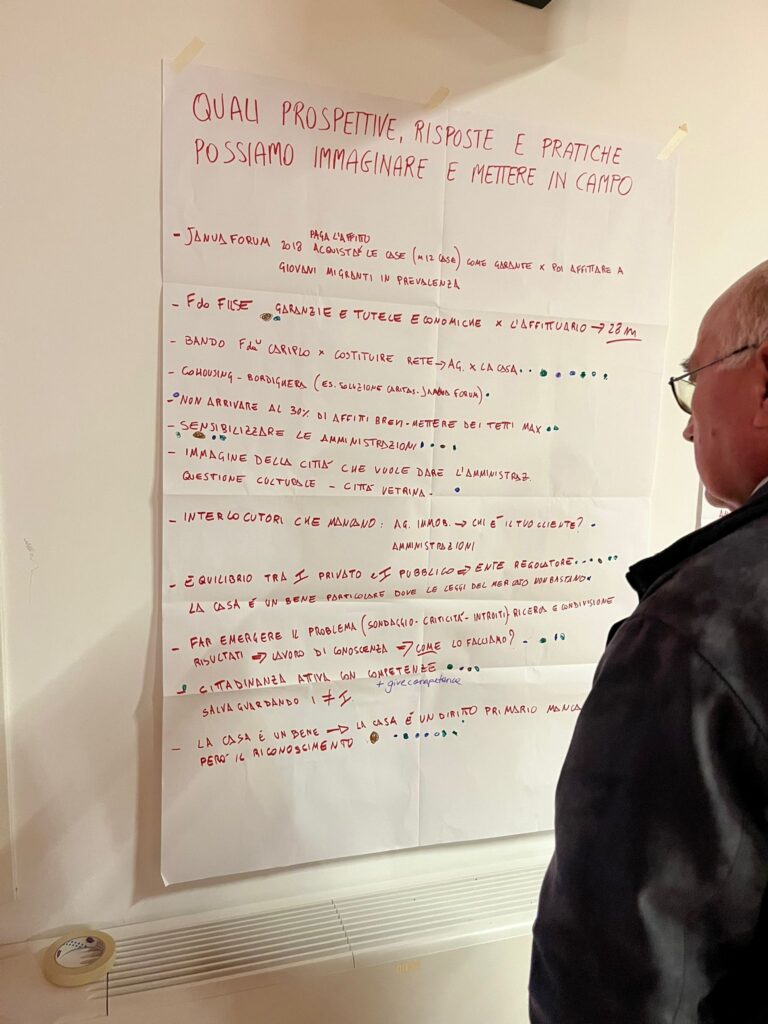 QUALI PROSPETTIVE, RISPOSTE E PRATICHE
POSSIAMO IMMAGINARE E METTERE IN CAMPO
PAGA L'AFFITTO
- JANUA FORUM 2018 ACQUISTA LE CASE (n 12 CASE) COME GARANTE x POI AFFITTARE A
GIOVANI MIGRANTI IN PREVALENZA
- Fdo FILSE GARANZIE E TUTELE ECONOMICHE x L'AFFITTUARIO → 28 m
- BANDO Fdaz CARIPLO x COSTITUIRE RETE → AG. x LA CASA
- COHOUSING - BORDIGHERA (ES. SOLUZIONE CARITAS - JANUA FORUM)
- NON ARRIVARE AL 30% DI AFFITTI BREVI - METTERE DEI TETTI MAX
- SENSIBILIZZARE LE AMMINISTRAZIONI
- IMMAGINE DELLA CITTÀ CHE VUOLE DARE L'AMMINISTRAZ.
QUESTIONE CULTURALE - CITTÀ VETRINA
- INTERLOCUTORI CHE MANCANO: AG. IMMOB. → CHI È IL TUO CLIENTE?
AMMINISTRAZIONI
- EQUILIBRIO TRA I PRIVATO e I PUBBLICO → ENTE REGOLATORE
LA CASA È UN BENE PARTICOLARE DOVE LE LEGGI DEL MERCATO NON BASTANO
- FAR EMERGERE IL PROBLEMA (SONDAGGIO - CRITICITÀ - INTROITI) RICERCA E CONDIVISIONE
RISULTATI → LAVORO DI CONOSCENZA → COME LO FACCIAMO?
- CITTADINANZA ATTIVA CON COMPETENZE
+ give competence
SALVAGUARDANDO I ≠ I.
- LA CASA È UN BENE → LA CASA È UN DIRITTO PRIMARIO MANCA
PERÒ IL RICONOSCIMENTO